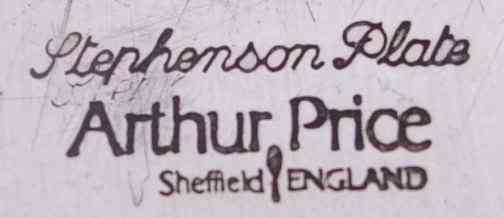 Stephenson Plate
Arthur Price
Sheffield ENGLAND